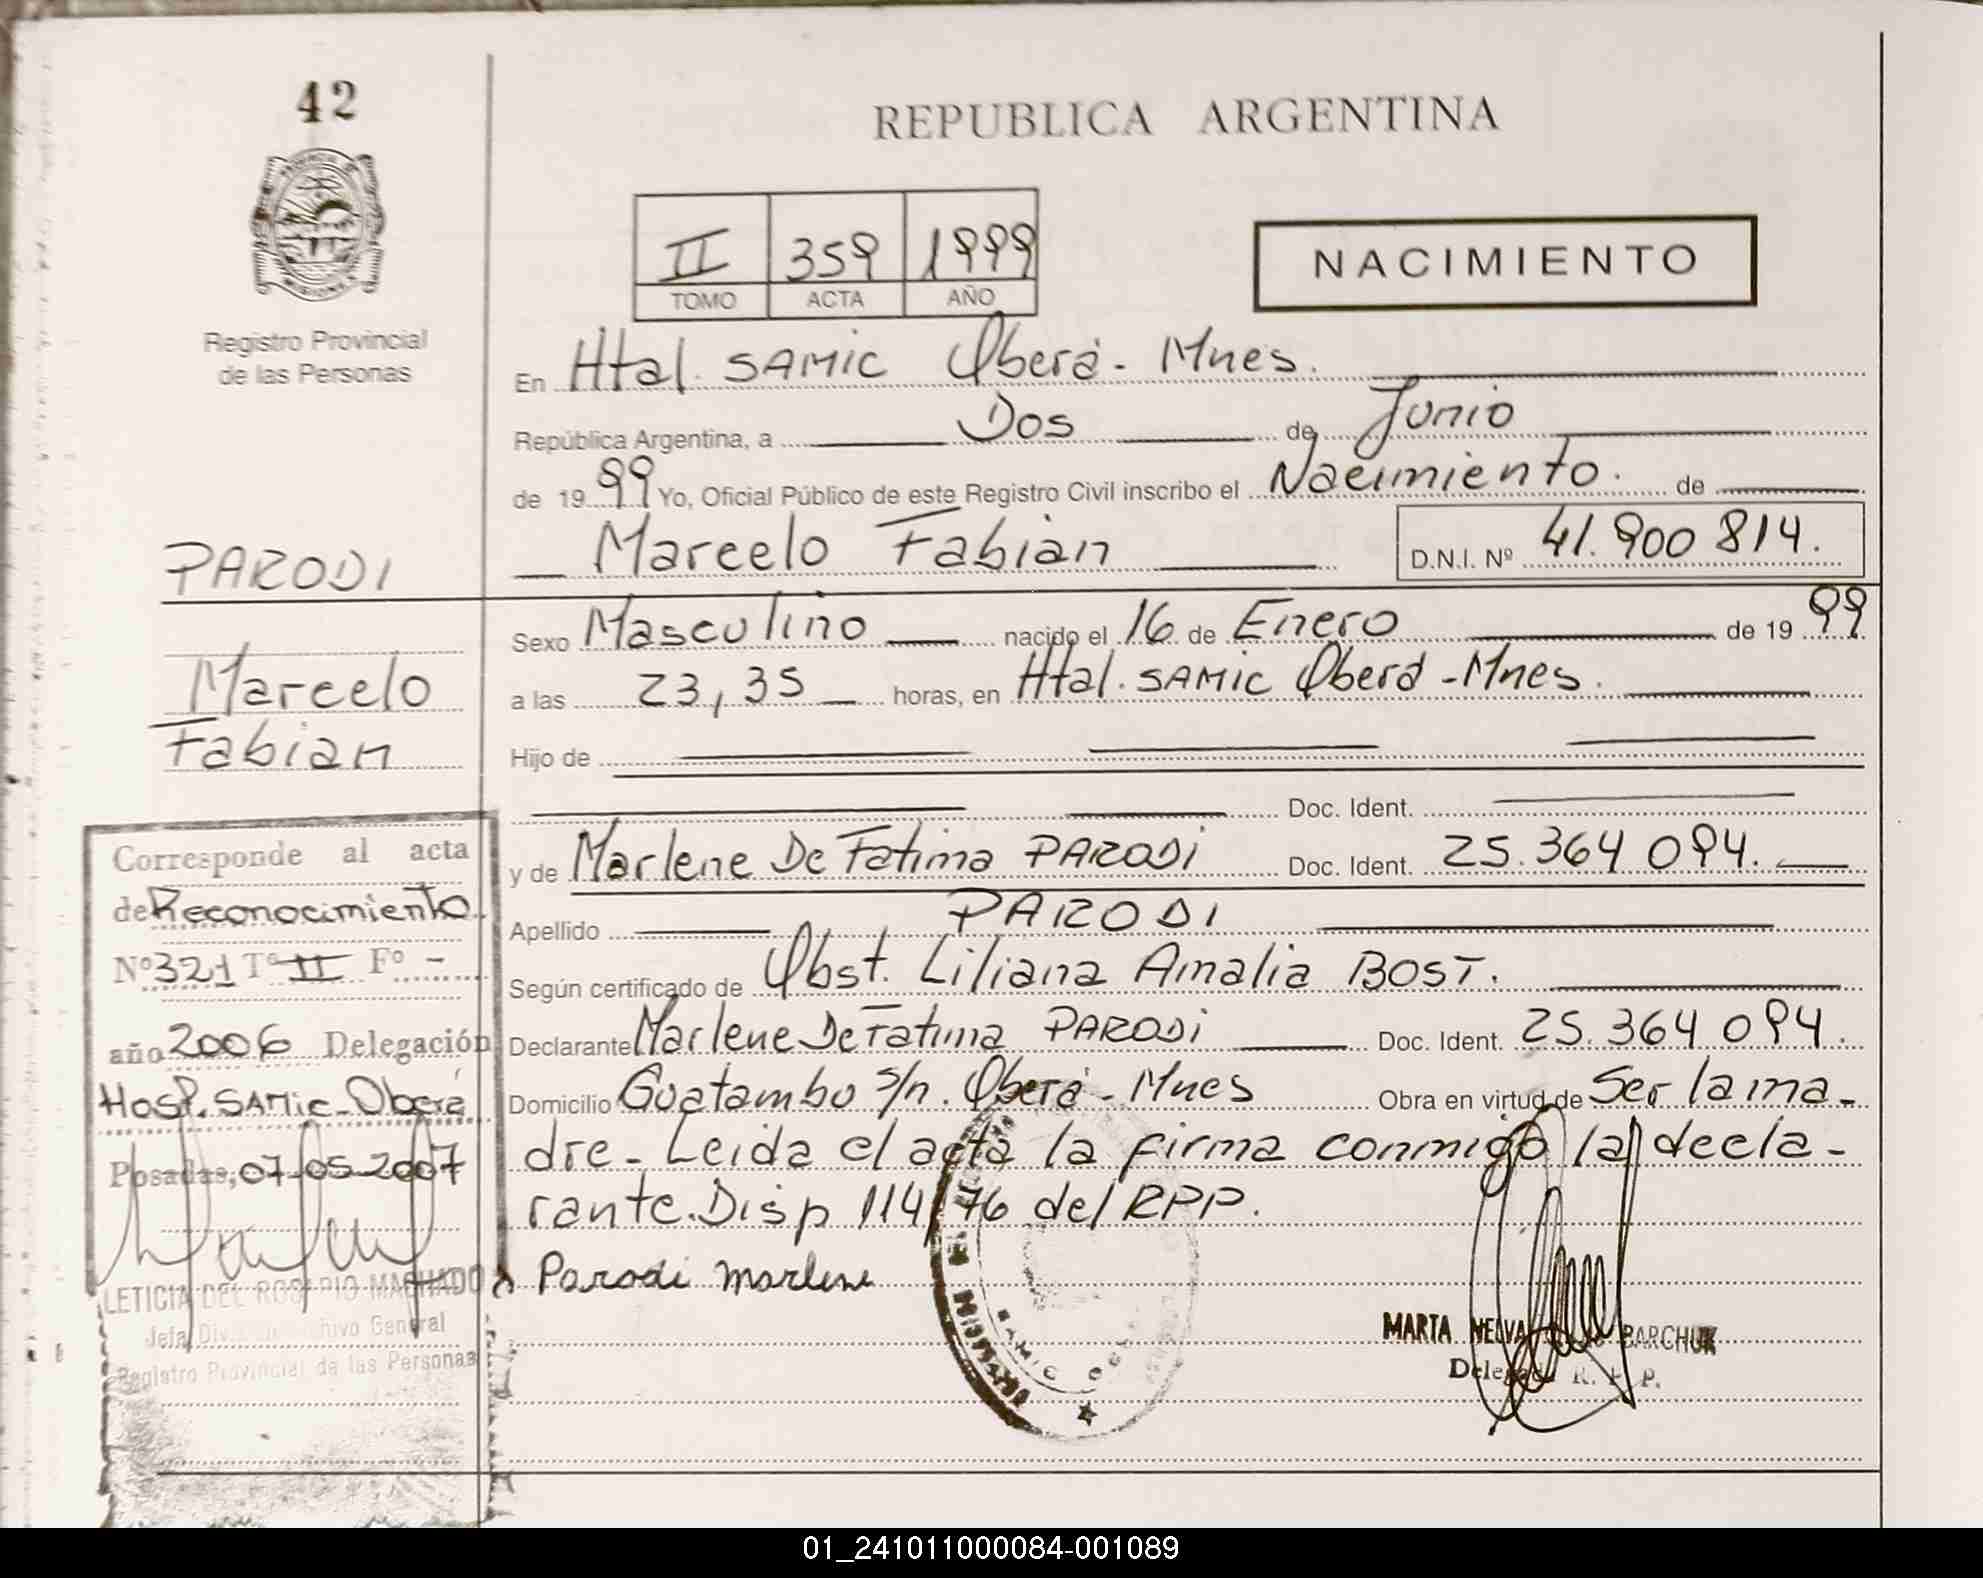 42
REPUBLICA ARGENTINA
II 359 1999
TOMO ACTA AÑO
NACIMIENTO
Registro Provincial
de las Personas
En Htal. SAMIC Oberá - Mnes.
República Argentina, a Dos de Junio
de 1999 Yo, Oficial Público de este Registro Civil inscribo el Nacimiento. de
Marcelo Fabian D.N.I. Nº 41.900 814.
PARODI
Marcelo
Fabian
Sexo Masculino nacido el 16 de Enero de 1999
a las 23,35 horas, en Htal. SAMIC Oberá - Mnes.
Hijo de
Doc. Ident.
y de Marlene De Fatima PARODI Doc. Ident. 25.364 094.
Apellido PARODI
Según certificado de Obst. Liliana Amalia BOST.
Declarante Marlene De Fatima PARODI Doc. Ident. 25.364 094.
Domicilio Guatambu s/n. Oberá - Mnes Obra en virtud de Ser la ma-
dre - Leida el acta la firma conmigo la decla-
rante. Disp 114/76 del RPP.
x Parodi Marlene
Corresponde al acta
de Reconocimiento
Nº 321 Tº II Fº -
año 2006 Delegación
Hosp. SAMic - Oberá
Posadas, 07-05-2007
LETICIA DEL ROSARIO MACHADO
Jefa Archivo General
Registro Provincial de las Personas
MARTA NELVA BARCHUK
Delegada R. P. P.
01_241011000084-001089